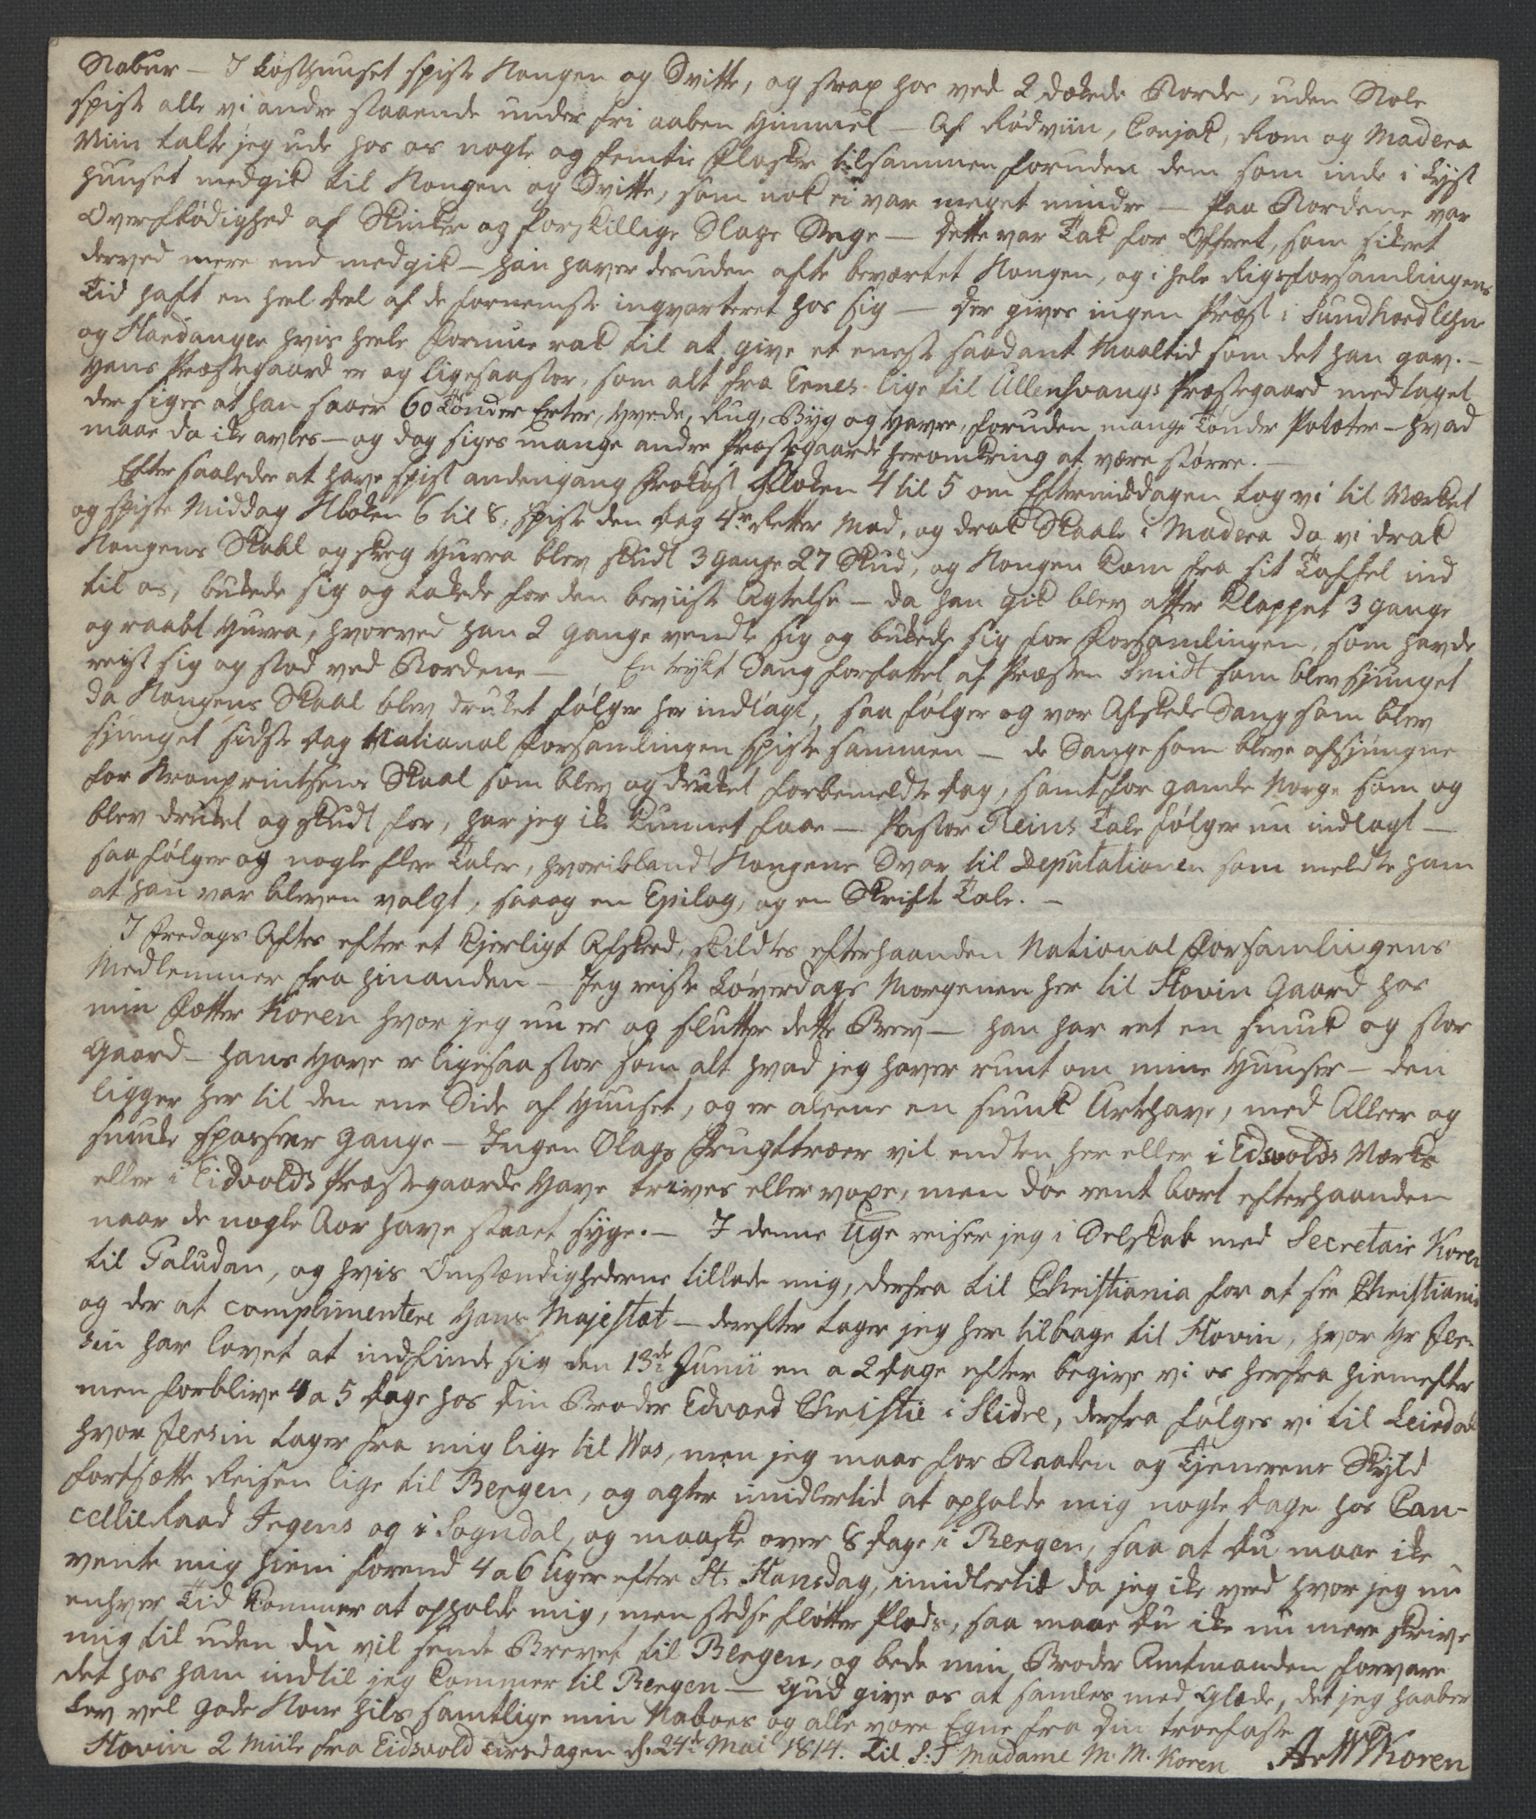 Naboer — I Lysthuuset spiste Kongen og Svitte, og strax hos ved 2 dækede Borde, uden Stole
spiste alle vi andre staaende under fri aaben Himmel — Af Rødviin, Conjak, Rom og Madera
Viin talte jeg ude hos os nogle og femtie Flasker tilsammen foruden dem som inde i Lyst
huuset medgik til Kongen og Svitte, som nok ei var meget mindre — Paa Bordene var
Overflødighed af Skinker og forskillige Slags Stege — Dette var Tak for Offeret, som sikert
derved mere end medgik — han haver desuden ofte beværtet Kongen, og i hele Rigsforsamlingens
Tid haft en heel Deel af de fornemste inqvarteret hos sig — der gives ingen Præst i Sundhordlehn
og Hardanger hvis heele Formue rak til at give et eneste saadant Maaltid som det han gav. —
Hans Præstegaard er og ligesaastor, som alt fra Ernes lige til Ullensvangs Præstegaard medtaget
der siges at han saaer 60 Tønder Erter, Hvede, Rug, Byg og Havre, foruden mange Tønder Poteter — hvad
maae da ike avles — og dog siges mange andre Præstegaarde heromkring at være større. —
Efter saaledes at have spist andengang Frokost Kloken 4 til 5 om Eftermiddagen tog vi til Værket
og spiste Middag Kloken 6 til 8, spiste den Dag 4re Retter Mad, og drak Skaaler i Madera da vi drak
Kongens Skaal og skreg Hurra blev skudt 3 gange 27 Skud, og Kongen kom fra sit Taffel ind
til os, bukede sig og takede for den beviiste Agtelse — da han gik blev atter klappet 3 gange
og raabt Hurra, hvorved han 2 gange vendte sig og bukede sig for Forsamlingen, som havde
reist sig og stod ved Bordene — En trykt Sang forfattet af Præsten Smidt som blev sjunget
da Kongens Skaal blev druket følger her indlagt, saa følger og vor Afskeds Sang som blev
sjunget sidste Dag National Forsamlingen spiste sammen — de Sange som bleve afsjungne
for Kronprintsens Skaal som blev og druket forbemeldte Dag, samt for gamle Norge som og
blev druket og skudt for, har jeg ike kunnet faae — Pastor Reins Tale følger nu indlagt —
saa følger og nogle flere Taler, hvoriblandt Kongens Svar til Deputationen som meldte ham
at han var bleven valgt, saaog en Epilog, og en Skrifte Tale. —
I Fredags Aftes efter et kjerligt Afskeed, skildtes efterhaanden National Forsamlingens
Medlemmer fra hinanden — Jeg reiste Løverdags Morgenen her til Hovin Gaard hos
min Fætter Koren hvor jeg nu er og slutter dette Brev — han har ret en smuk og stor
Gaard — hans Have er ligesaa stor som alt hvad jeg haver runt om mine Huuser — den
ligger her til den ene Side af Huuset, og er aleene en smuk Urtehave, med Alleer og
smuke Spasseer gange — Ingen Slags Frugttræer vil endten her eller i Edsvolds Værks
eller i Eidvolds Præstegaards Have trives eller voxe, men döe rent bort efterhaanden
naar de nogle Aar have staaet syge. — I denne Uge reiser jeg i Selskab med Secretair Koren
til Paludan, og hvis Omstændighederne tillade mig, derfra til Christiania for at see Christiania
og der at complimentere Hans Majestæt — derefter tager jeg her tilbage til Hovin, hvor Hr Jer-
sin har lovet at indfinde sig den 13de Junii en a 2 Dage efter begive vi os herfra hiemefter
men forblive 4 a 5 Dage hos din Broder Edvard Christie i Slidre, derfra følges vi til Leirdal
hvor Jersin tager fra mig lige til Wos, men jeg maae for Baaden og Tjenerens Skyld
fortsætte Reisen lige til Bergen, og agter imidlertid at opholde mig nogle Dage hos Can-
cellieRaad Irgens og i Sogndal, og maaske over 8 Dage i Bergen, saa at Du maae ike
vente mig hiem forend 4 a 6 Uger efter St. Hansdag, imidlertid da jeg ike veed hvor jeg nu
enhver Tid kommer at opholde mig, men stedse flötter Plads, saa maae Du ike nu mere skrive
mig til uden du vil sende Brevet til Bergen, og bede min Broder Amtmanden forvare
det hos ham indtil jeg kommer til Bergen — Gud give os at samles med Glæde, det jeg haaber
Lev vel gode Kone hils samtlige min Naboer og alle vore Egne fra Din troefaste
Hovin 2 Miile fra Eidsvold tirsdagen d. 24de Mai 1814. Til S: T Madame M. M. Koren ArWKoren